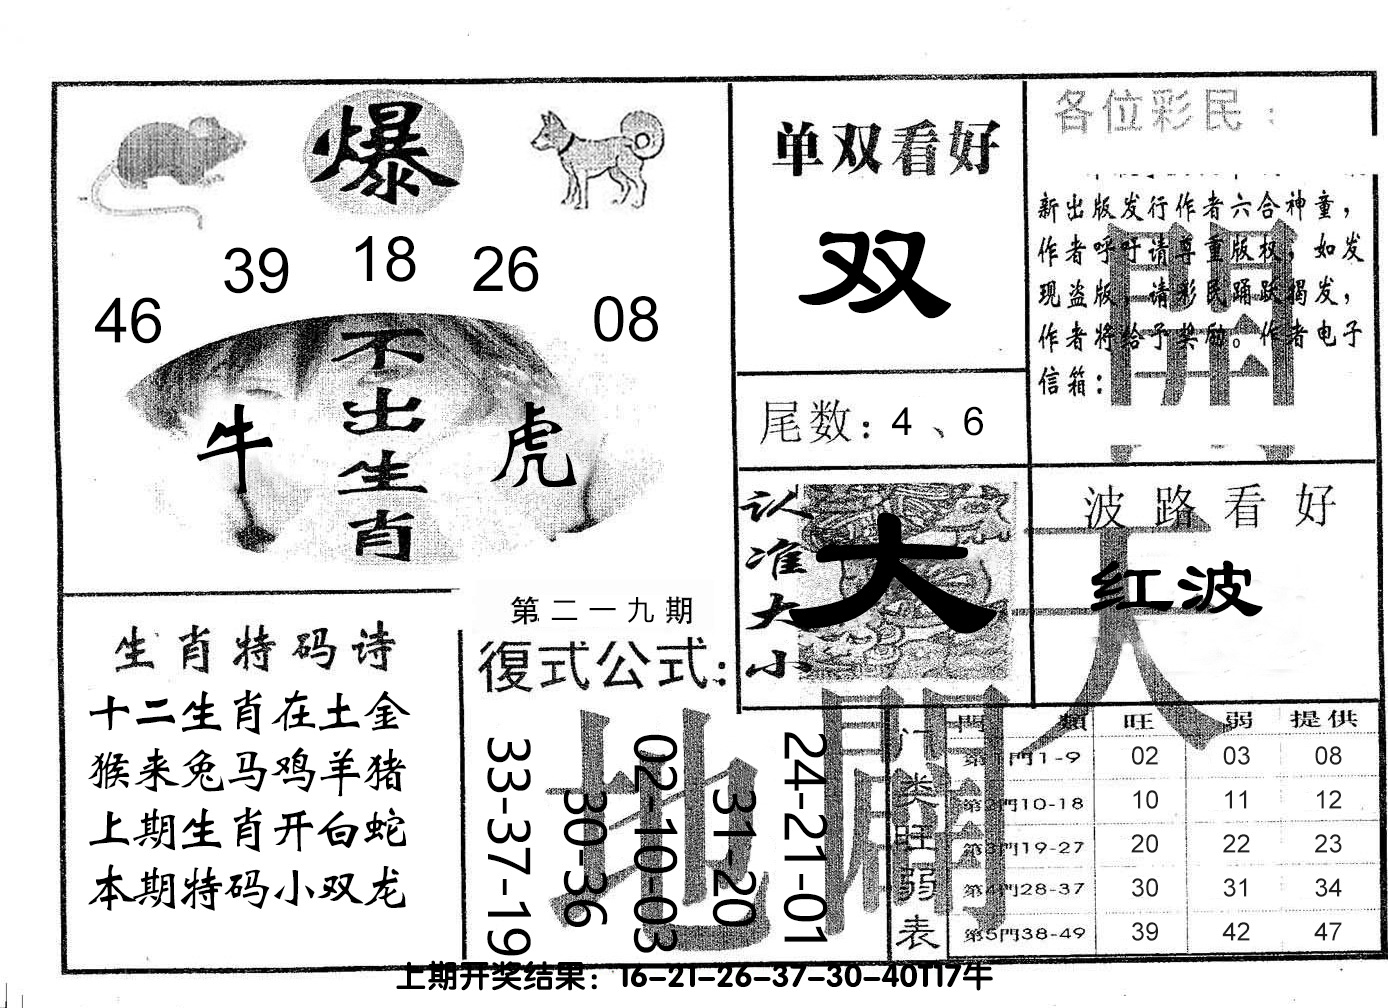 爆
46 39 18 26 08
不出生肖
牛 虎
生肖特码诗
十二生肖在土金
猴来兔马鸡羊猪
上期生肖开白蛇
本期特码小双龙
第二一九期
復式公式:
33-37-19
30-36
02-10-03
31-20
24-21-01
单双看好
双
尾数:4、6
认准大小
大
各位彩民:
新出版发行作者六合神童，
作者呼吁请尊重版权，如发
现盗版，请彩民踊跃揭发，
作者将给予奖励。作者电子
信箱:
波路看好
红波
天
地
開
門類 旺 弱 提供
门类旺弱表
第1門1-9 02 03 08
第2門10-18 10 11 12
第3門19-27 20 22 23
第4門28-37 30 31 34
第5門38-49 39 42 47
上期开奖结果：16-21-26-37-30-40T17牛